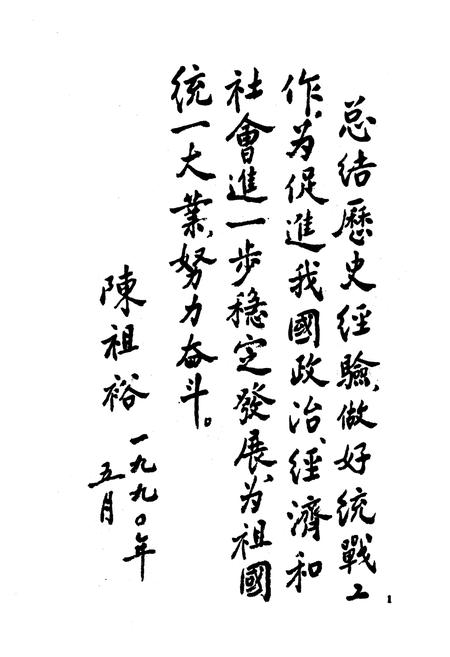 总结歷史经驗,做好统戰工
作,为促進我國政治、经濟和
社會進一步稳定發展、为祖國
统一大業,努力奋斗。
陳祖裕
一九九〇年
五月
1